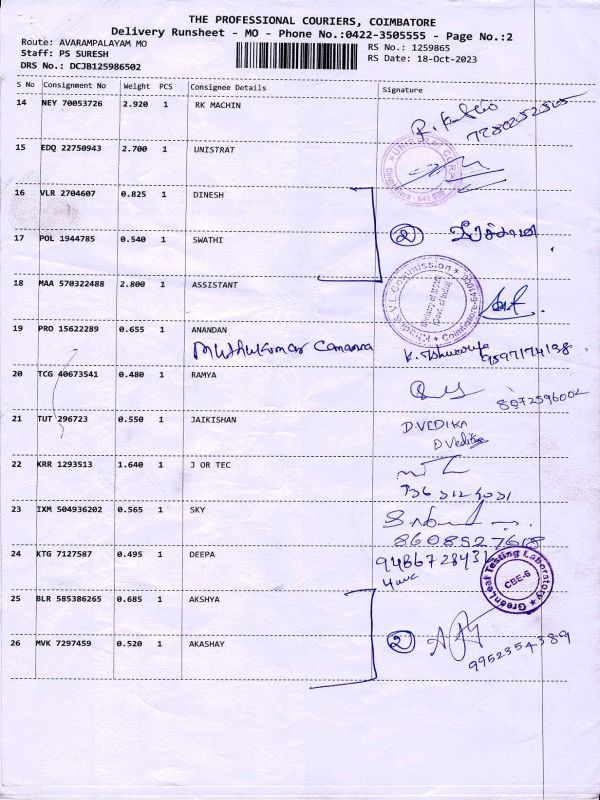 THE PROFESSIONAL COURIERS, COIMBATORE
Delivery Runsheet - MO - Phone No.:0422-3505555 - Page No.:2
Route: AVARAMPALAYAM MO
RS No.: 1259865
Staff: PS SURESH
RS Date: 18-Oct-2023
DRS No.: DCJB125986502
S No Consignment No Weight PCS Consignee Details Signature
14 NEY 70053726 2.920 1 RK MACHIN
15 EDQ 22750943 2.700 1 UNISTRAT
16 VLR 2704607 0.825 1 DINESH
17 POL 1944785 0.540 1 SWATHI
2
18 MAA 570322488 2.800 1 ASSISTANT
19 PRO 15622289 0.655 1 ANANDAN
9597174138
20 TCG 40673541 0.480 1 RAMYA
8072596002
21 TUT 296723 0.550 1 JAIKISHAN
D.VEDIKA
D Vedika
22 KRR 1293513 1.640 1 J OR TEC
23 IXM 504936202 0.565 1 SKY
24 KTG 7127587 0.495 1 DEEPA
GreenLeaf Testing Laboratory
CBE-6
25 BLR 585386265 0.685 1 AKSHYA
26 MVK 7297459 0.520 1 AKASHAY
2
9952354389